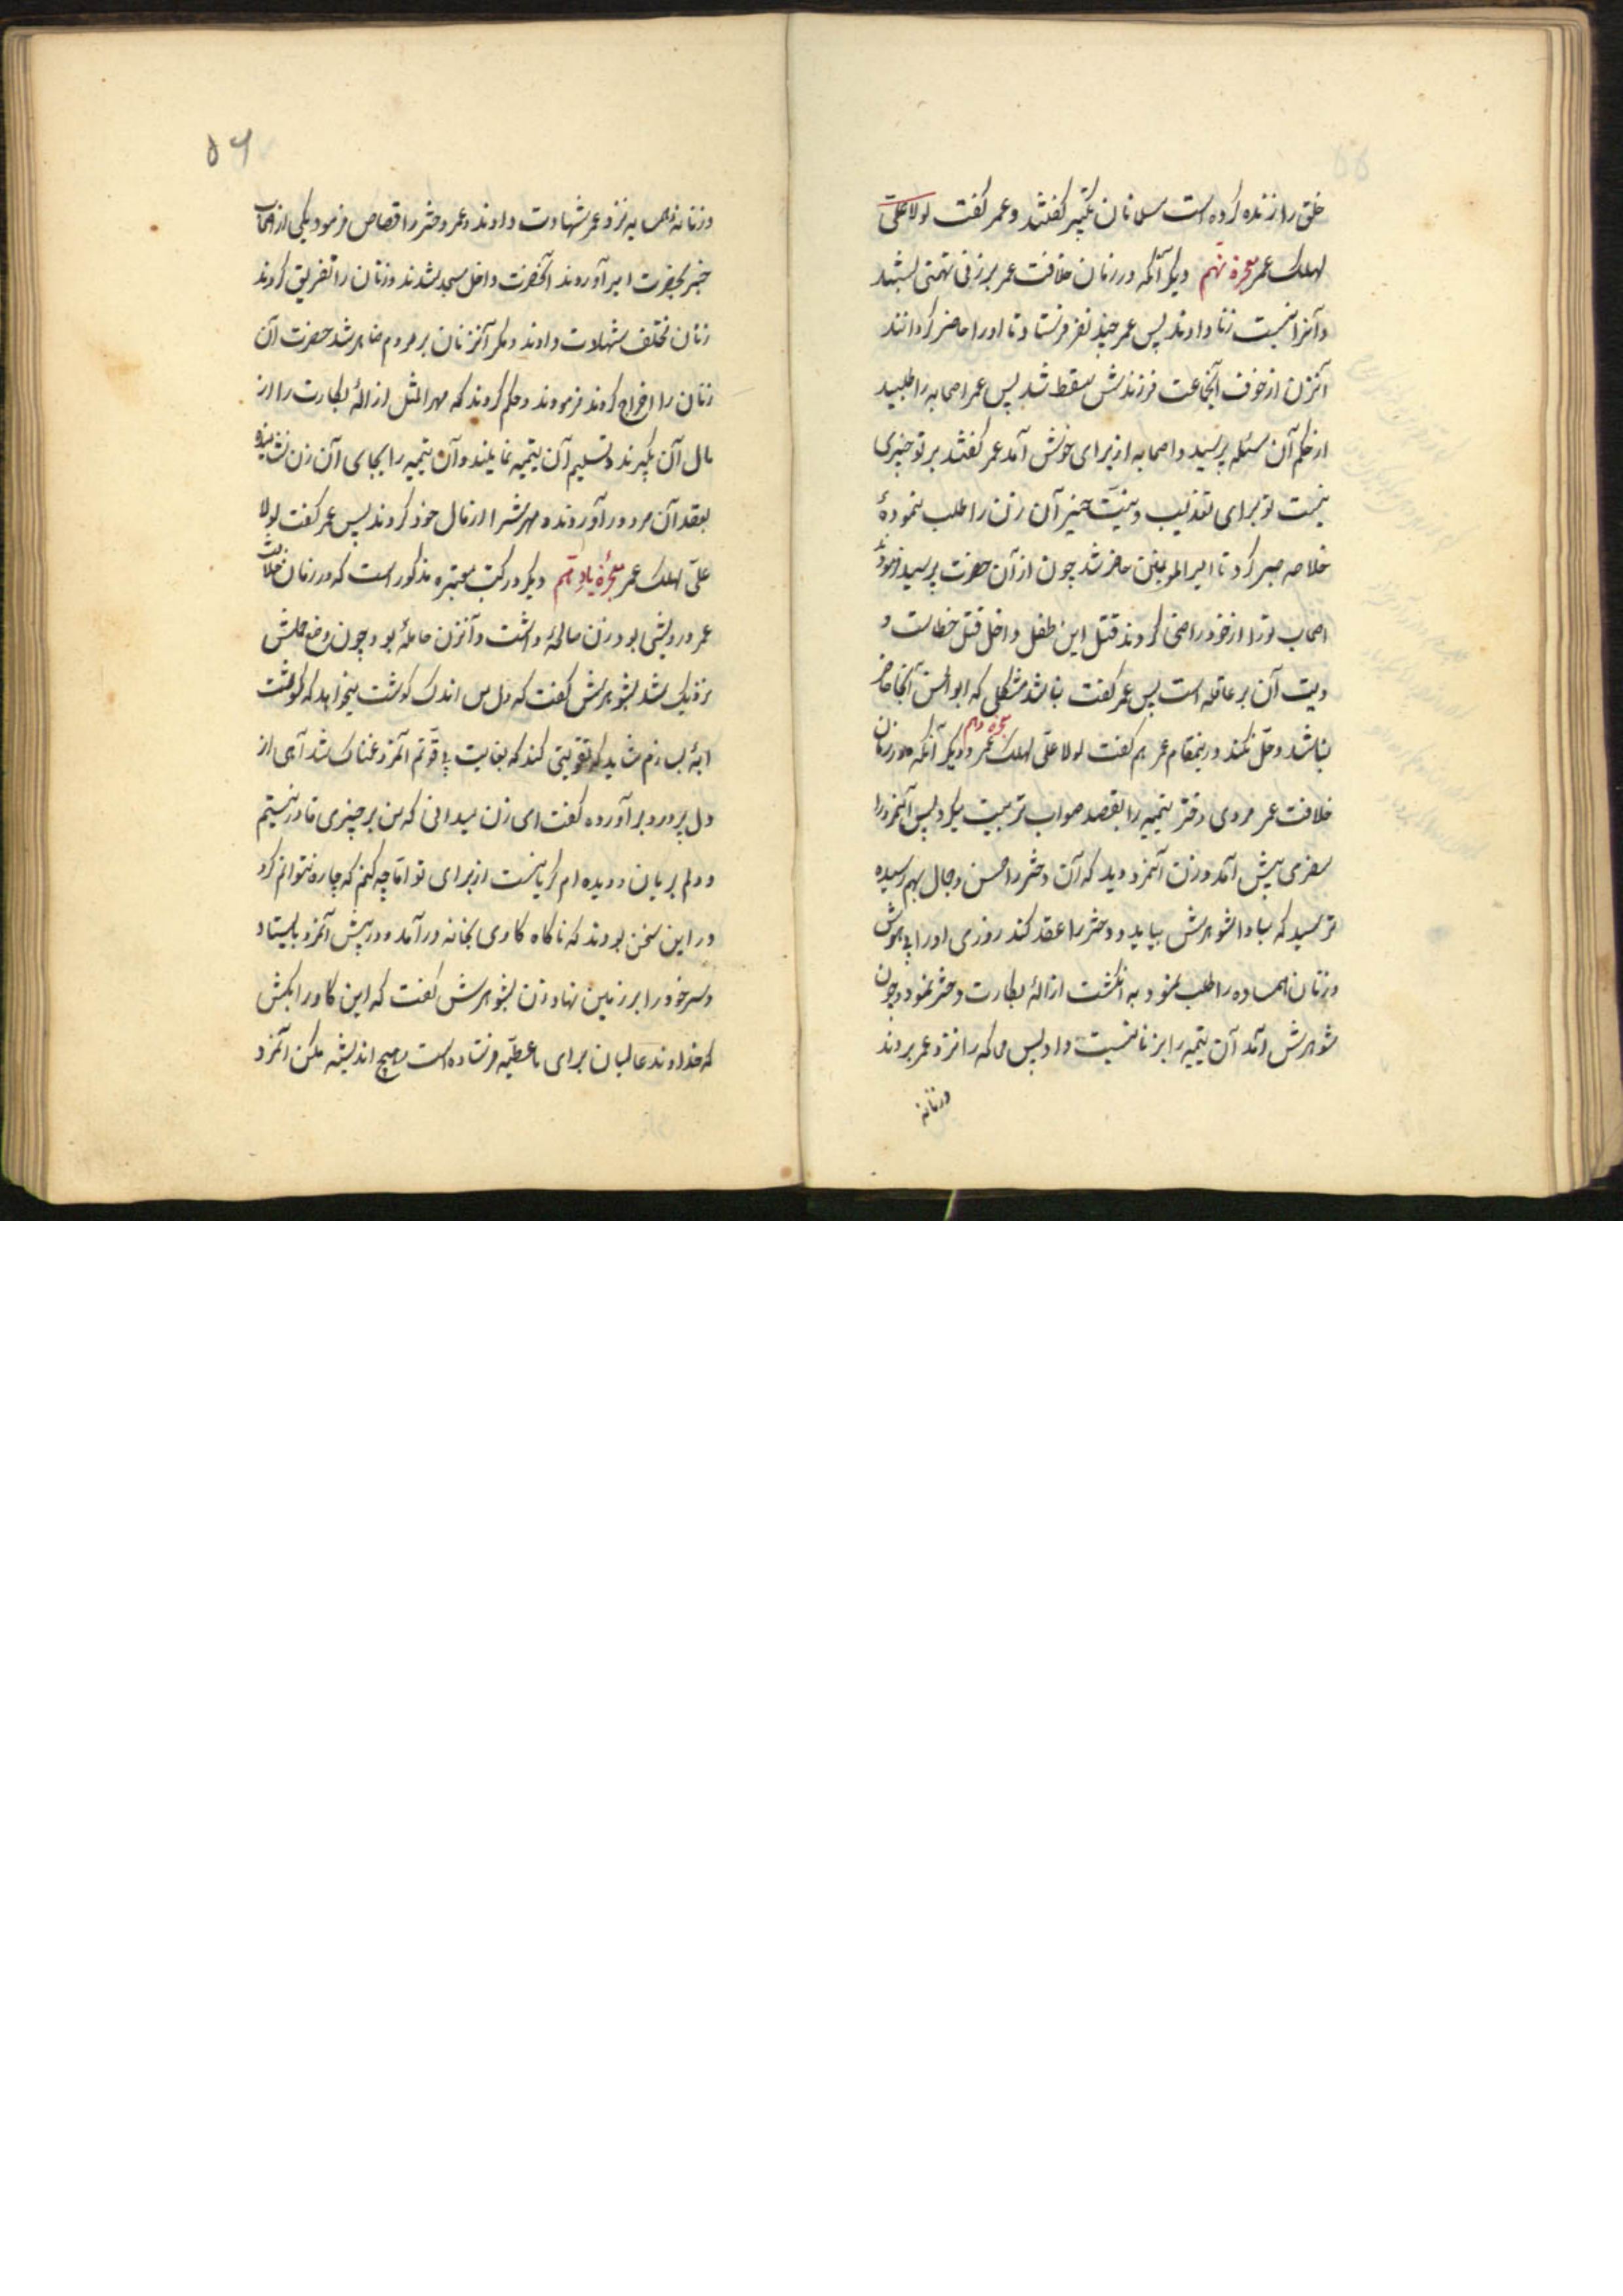 خلق را زنده کرده است مسلمانان تکبیر گفتند و عمر گفت لولا علی
لهلک عمر معجزه نهم دیگر آنکه در زمان خلافت عمر بر زنی تهمتی بستند
و آنرا نسبت زنا دادند پس عمر چند نفر فرستاد تا او را حاضر گردانند
آنزن از خوف آنجماعت فرزندش سقط شد پس عمر اصحابه را طلبید
از حکم آن مسئله پرسید و اصحابه از برای خوش آمد عمر گفتند بر تو چیزی
نیست تو برای تعذیب و نیت خیر آن زن را طلب نمودهٔ
خلاصه صبر کرد تا امیرالمومنین حاضر شد چون از آن حضرت پرسید فرمود
اصحاب ترا از خود راضی کردند قتل این طفل داخل قتل خطاست و
دیت آن بر عاقله است پس عمر گفت نباشد مشکلی که ابوالحسن آنجا حاضر
نباشد و حل نکند در ینمقام عمر هم گفت لولا علی لهلک عمر معجزه دهم و دیگر آنکه در زمان
خلافت عمر مردی دختر یتیمیه را بقصد صواب تربیت میکرد پس آنمرد را
سفری پیش آمد و زن آنمرد دید که آن دختر را حسن و جمال بهم رسیده
ترسید که مبادا شوهرش بیاید و دختر را عقد کند روزی او را بیهوش
و زنان همساده را طلب نمود به انگشت ازالهٔ بکارت دختر نمود و چون
شوهرش آمد آن یتیمیه را بزنا نسبت داد پس محاکمه را نزد عمر بردند
و زنانه
۵۶
و زنانه همسایه نزد عمر شهادت دادند و عمر دختر را قصاص فرمود یکی از اصحاب
خبر بحضرت امیر آوردند آنحضرت داخل مسجد شدند و زنان را تفریق کردند
زنان مختلف شهادت دادند و مکر آنزنان بر مردم ظاهر شد حضرت آن
زنان را اخراج کردند فرمودند و حکم کردند که مهرالمثل ازالهٔ بکارت را از
مال آن بگیرند و تسلیم آن یتیمیه نمایند و آن یتیمیه را بجای آن زن نشانیده
بعقد آن مرد در آوردند و مهرش را از مال خود کردند پس عمر گفت لولا
علی لهلک عمر معجزهٔ یازدهم دیگر در کتب معتبره مذکور است که در زمان خلافت
عمر درویشی بود زن صالحهٔ داشت و آنزن حاملهٔ بود چون وضع حملش
نزدیک شد بشوهرش گفت که دل من اندک گوشت میخواهد که گوشت
آبهٔ بسازم شاید که تقویتی کند که بغایت بی قوتم آنمرد غمناک شد آهی از
دل پر درد بر آورده گفت ای زن میدانی که من بر چیزی قادر نیستم
و دلم بریان و دیده ام گریانست از برای تو اما چه کنم که چاره نتوانم کرد
در این سخن بودند که ناگاه گاوی بخانه در آمد و در پیش آنمرد بایستاد
و سر خود را بر زمین نهاد زن بشوهرش گفت که این گاو را بکش
که خداوند عالمیان برای ما عطیه فرستاده است هیچ اندیشه مکن آنمرد